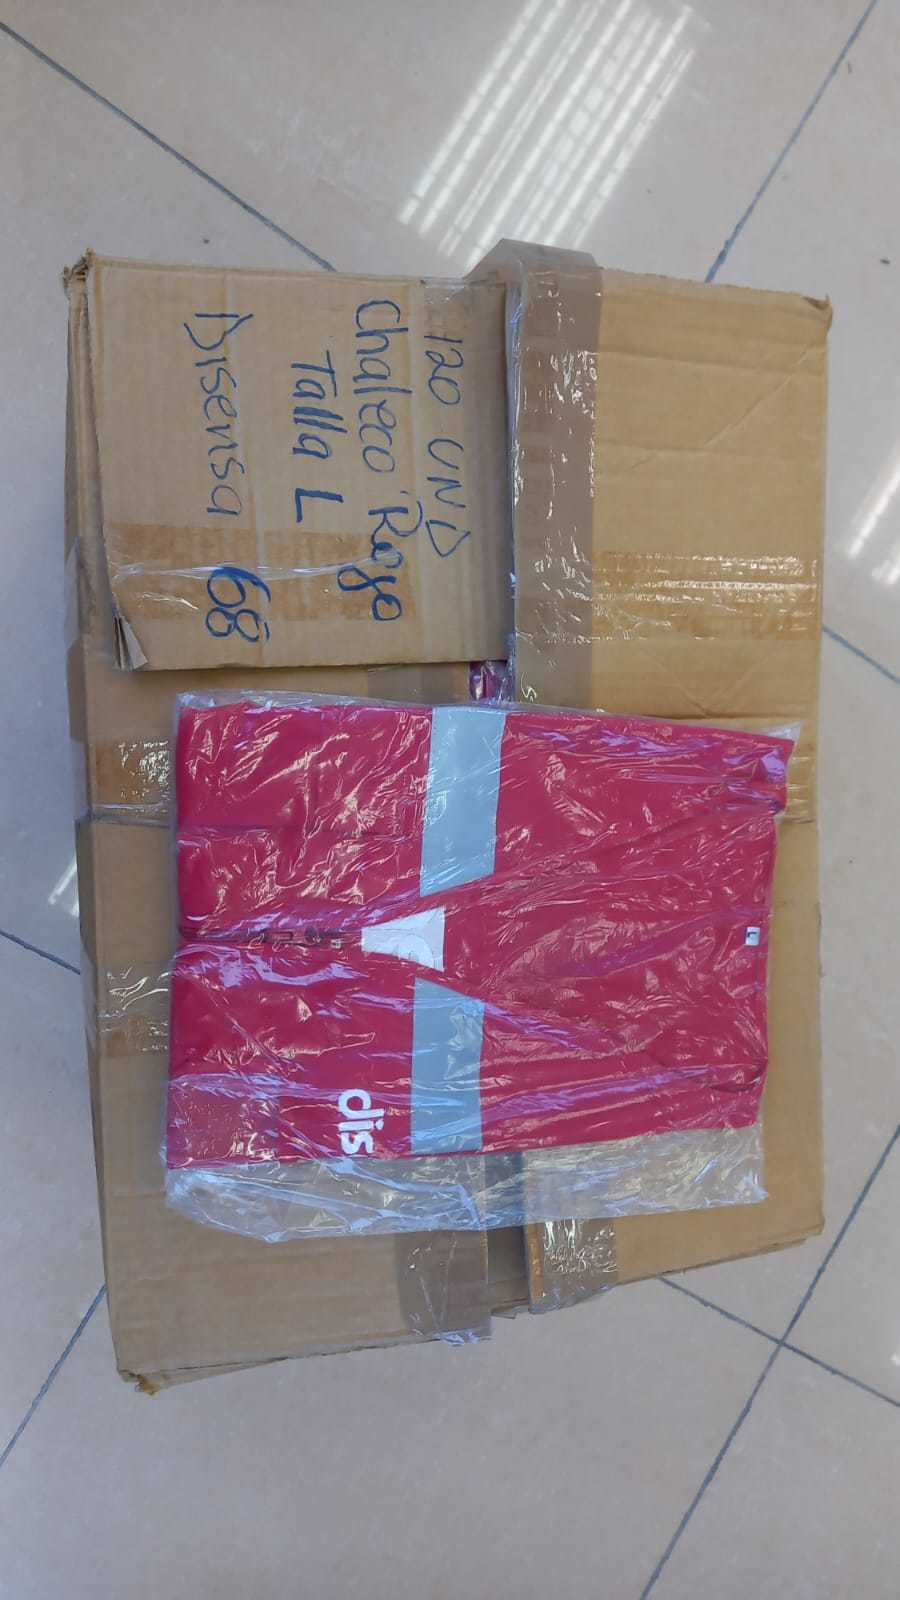 120 UND
Chaleco Rojo
Talla L
Disensa 68
L
dis